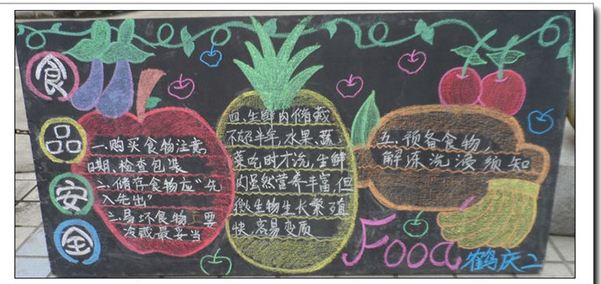 食
品
安
全
一、购买食物注意
日期,检查包装
二、储存食物应“先
入先出”
三、易坏食物,要
冷藏最妥当
四、生鲜肉储藏
不超半年,水果、蔬
菜吃时才洗,生鲜
肉虽然营养丰富,但
微生物生长繁殖
快,容易变质
五、预备食物,
解冻洗浸须知
Food
鹤庆二